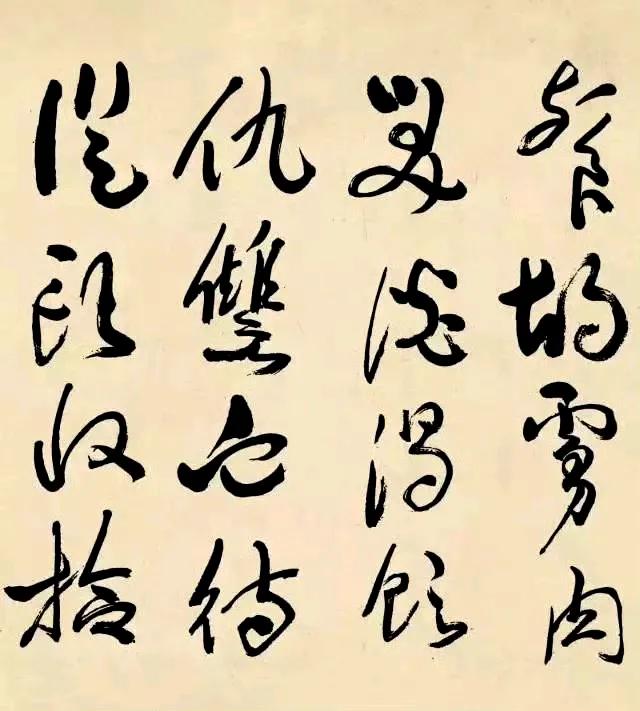 餐胡虜肉
笑談渴飲
仇讐血待
從頭收拾